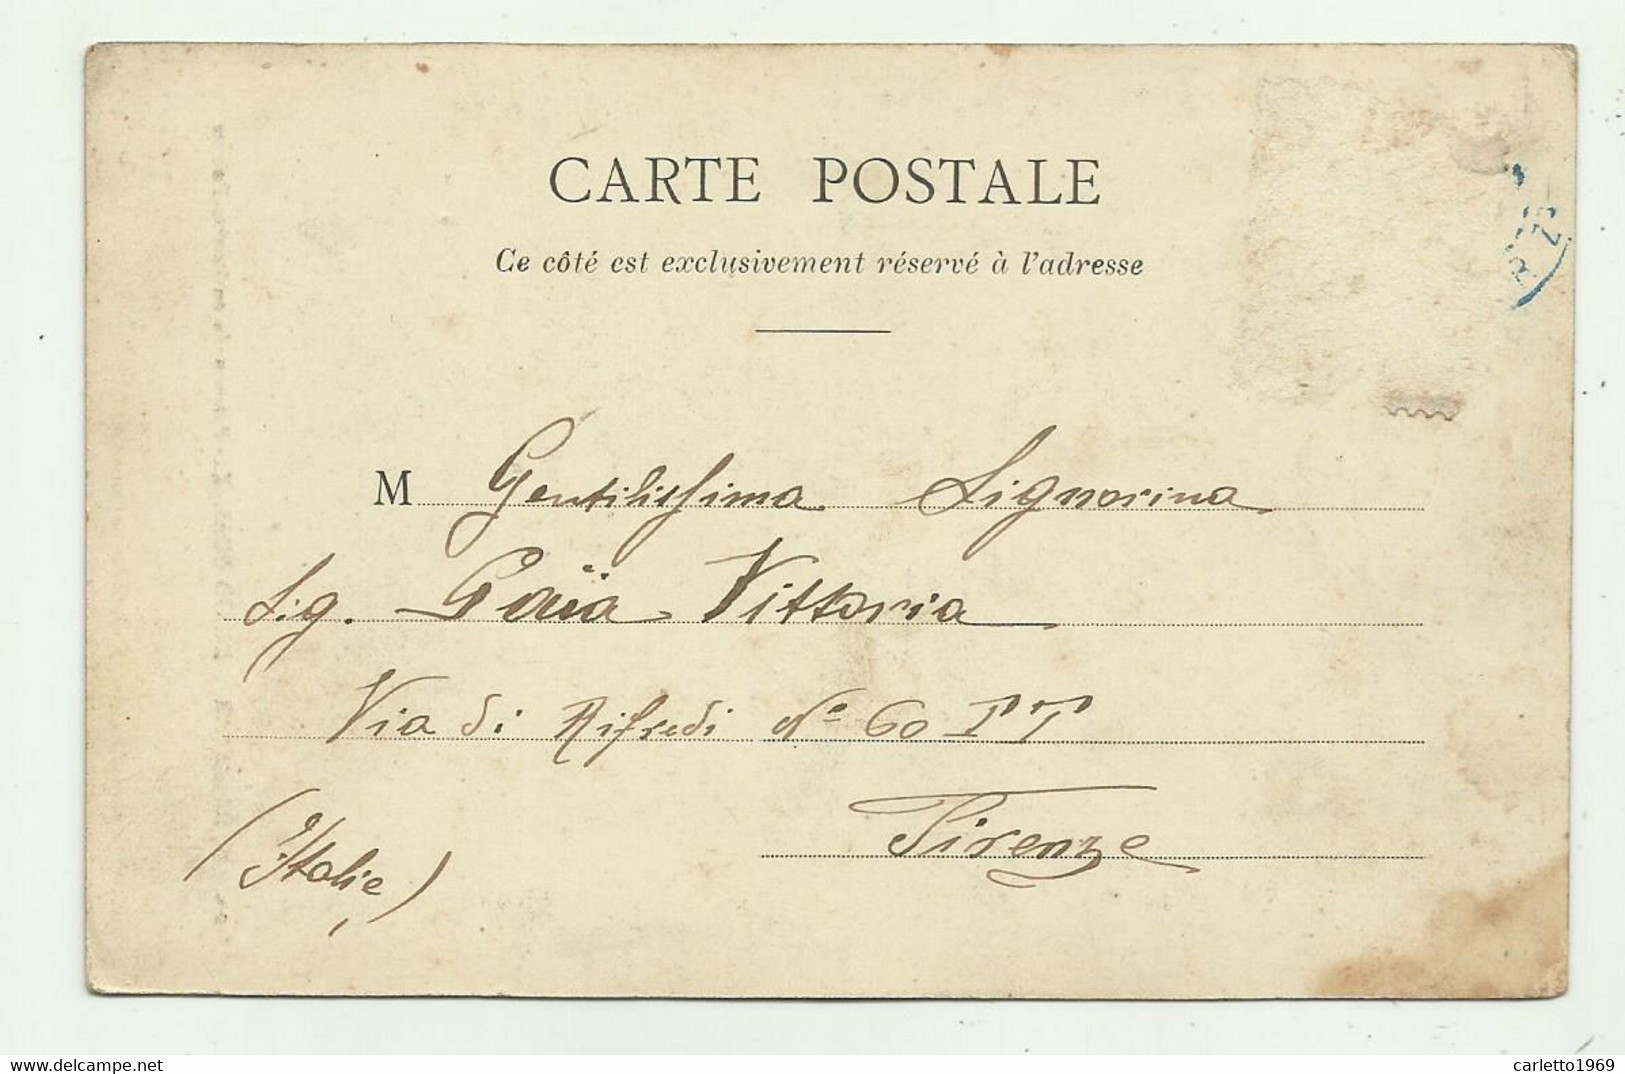 CARTE POSTALE
Ce côté est exclusivement réservé à l'adresse
M Gentilissima Signorina
Sig. Gaïa Vittoria
Via di Rifredi No 60 PT
Firenze
(Italie)
delcampe.net
carletto1969